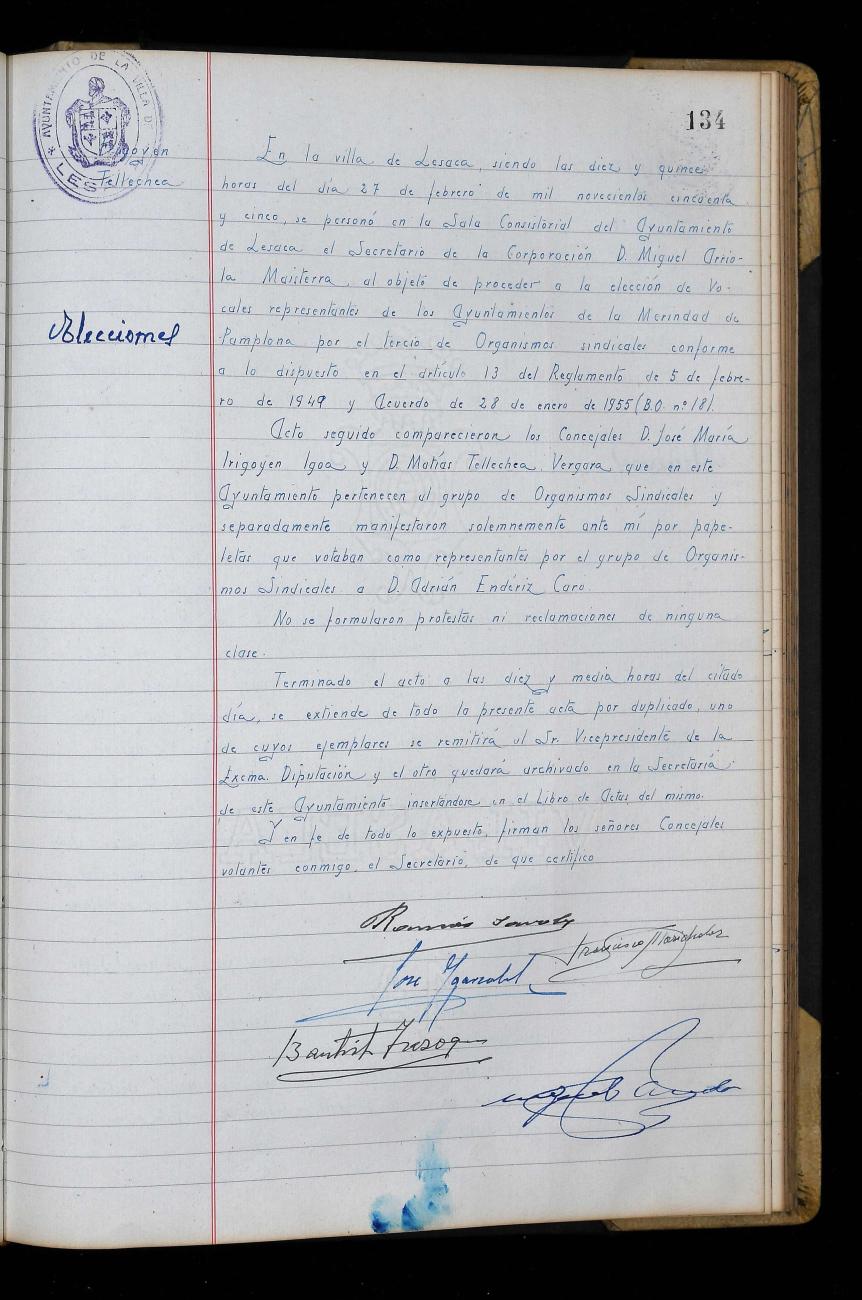 134
AYUNTAMIENTO DE LA VILLA DE
LES
Tellechea
Elecciones
En la villa de Lesaca, siendo las diez y quince
horas del día 27 de febrero de mil novecientos cincuenta
y cinco, se personó en la Sala Consistorial del Ayuntamiento
de Lesaca el Secretario de la Corporación D. Miguel Arrio-
la Masiterra, al objeto de proceder a la elección de Vo-
cales representantes de los Ayuntamientos de la Merindad de
Pamplona por el tercio de Organismos sindicales conforme
a lo dispuesto en el artículo 13 del Reglamento de 5 de febre-
ro de 1949 y Acuerdo de 28 de enero de 1955 (B.O. nº 18).
Acto seguido comparecieron los Concejales D. José María
Irigoyen Igoa y D. Matías Tellechea Vergara que en este
Ayuntamiento pertenecen al grupo de Organismos Sindicales y
separadamente manifestaron solemnemente ante mí por pape-
letas que votaban como representantes por el grupo de Organis-
mos Sindicales a D. Adrián Endériz Caro.
No se formularon protestas ni reclamaciones de ninguna
clase.
Terminado el acto a las diez y media horas del citado
día, se extiende de todo la presente acta por duplicado, uno
de cuyos ejemplares se remitirá al Sr. Vicepresidente de la
Excma. Diputación y el otro quedará archivado en la Secretaría
de este Ayuntamiento insertándose en el Libro de Actas del mismo.
Y en fe de todo lo expuesto, firman los señores Concejales
votantes conmigo, el Secretario, de que certifico
Francisco
José
Miguel